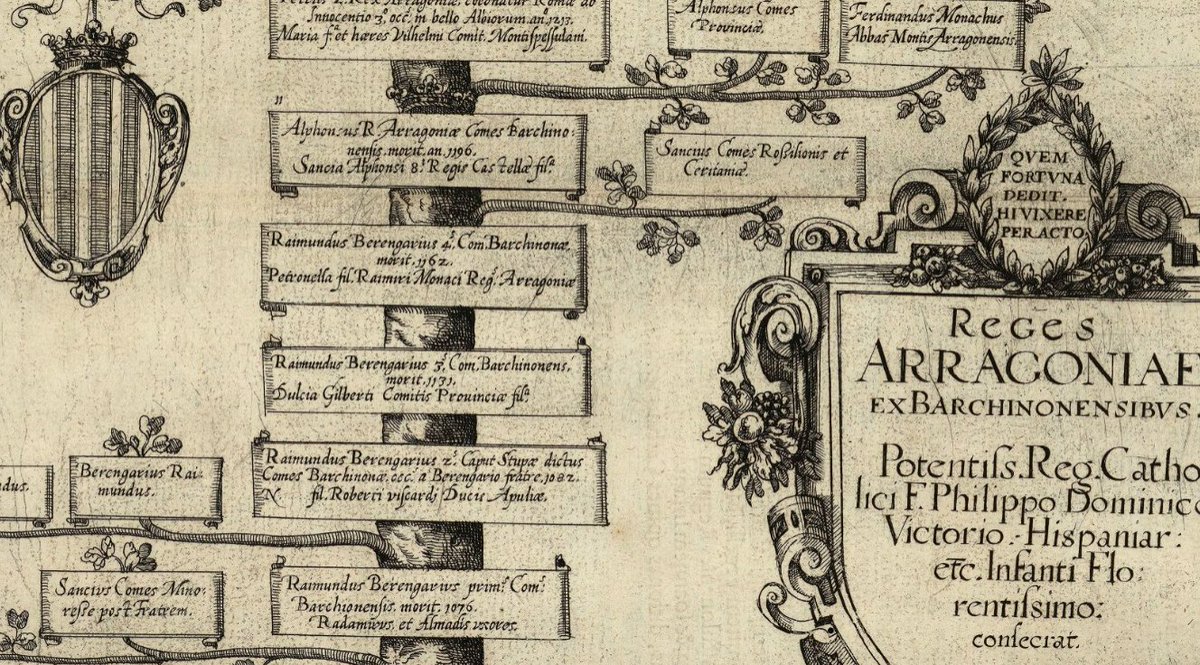 Innocentio 3º. occ. in bello Albiorum. an. 1213.
Maria f. et hæres Vilhelmi Comit. Montispessulani.
Alphonsus Comes
Provinciæ.
Ferdinandus Monachus
Abbas Montis Arragonensis.
Alphonsus R. Arragoniæ Comes Barchino-
nensis. morit. an. 1196.
Sancia Alphonsi 8. Regis Castellæ fil.
Sancius Comes Rossilionis et
Ceritaniæ.
QVEM
FORTVNA
DEDIT.
HI VIXERE
PERACTO
Raimundus Berengarius 4. Com. Barchinonæ.
morit. 1162.
Petronella fil. Raimiri Monaci Reg. Arragoniæ
Raimundus Berengarius 3. Com. Barchinonens.
morit. 1131.
Dulcia Gilberti Comitis Provinciæ fil.
REGES
ARRAGONIAE
EX BARCHINONENSIBVS
Raimundus Berengarius 2. Caput Stupæ dictus
Comes Barchinonæ. occ. a Berengario fratre. 1082.
N. fil. Roberti viscardj Ducis Apuliæ.
Berengarius Rai-
mundus.
dus.
Potentiss. Reg. Catho
lici F. Philippo Dominico
Victorio - Hispaniar:
etc. Infanti Flo:
rentissimo:
consecrat.
Sancius Comes Mino-
resse post Fratrem.
Raimundus Berengarius prim. Com.
Barchionensis. morit. 1076.
et Almadis uxores.